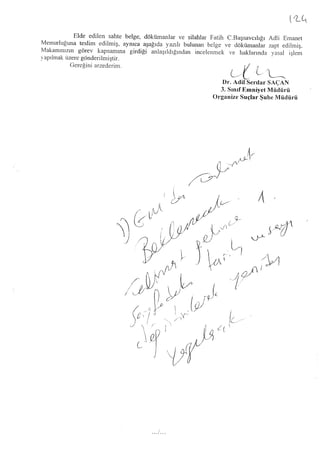 124
Elde edilen sahte belge, dökümanlar ve silahlar Fatih C.Başsavcılığı Adli Emanet
Memurluğuna teslim edilmiş, ayrıca aşağıda yazılı bulunan belge ve dökümanlar zapt edilmiş,
Makamınızın görev kapsamına girdiği anlaşıldığından incelenmek ve haklarında yasal işlem
yapılmak üzere gönderilmiştir.
Gereğini arzederim.
Dr. Adil Serdar SAÇAN
3. Sınıf Emniyet Müdürü
Organize Suçlar Şube Müdürü
talimat
Beklenecek 1.
Talimat gelince
tarih ve sayı
yeniden
..../....